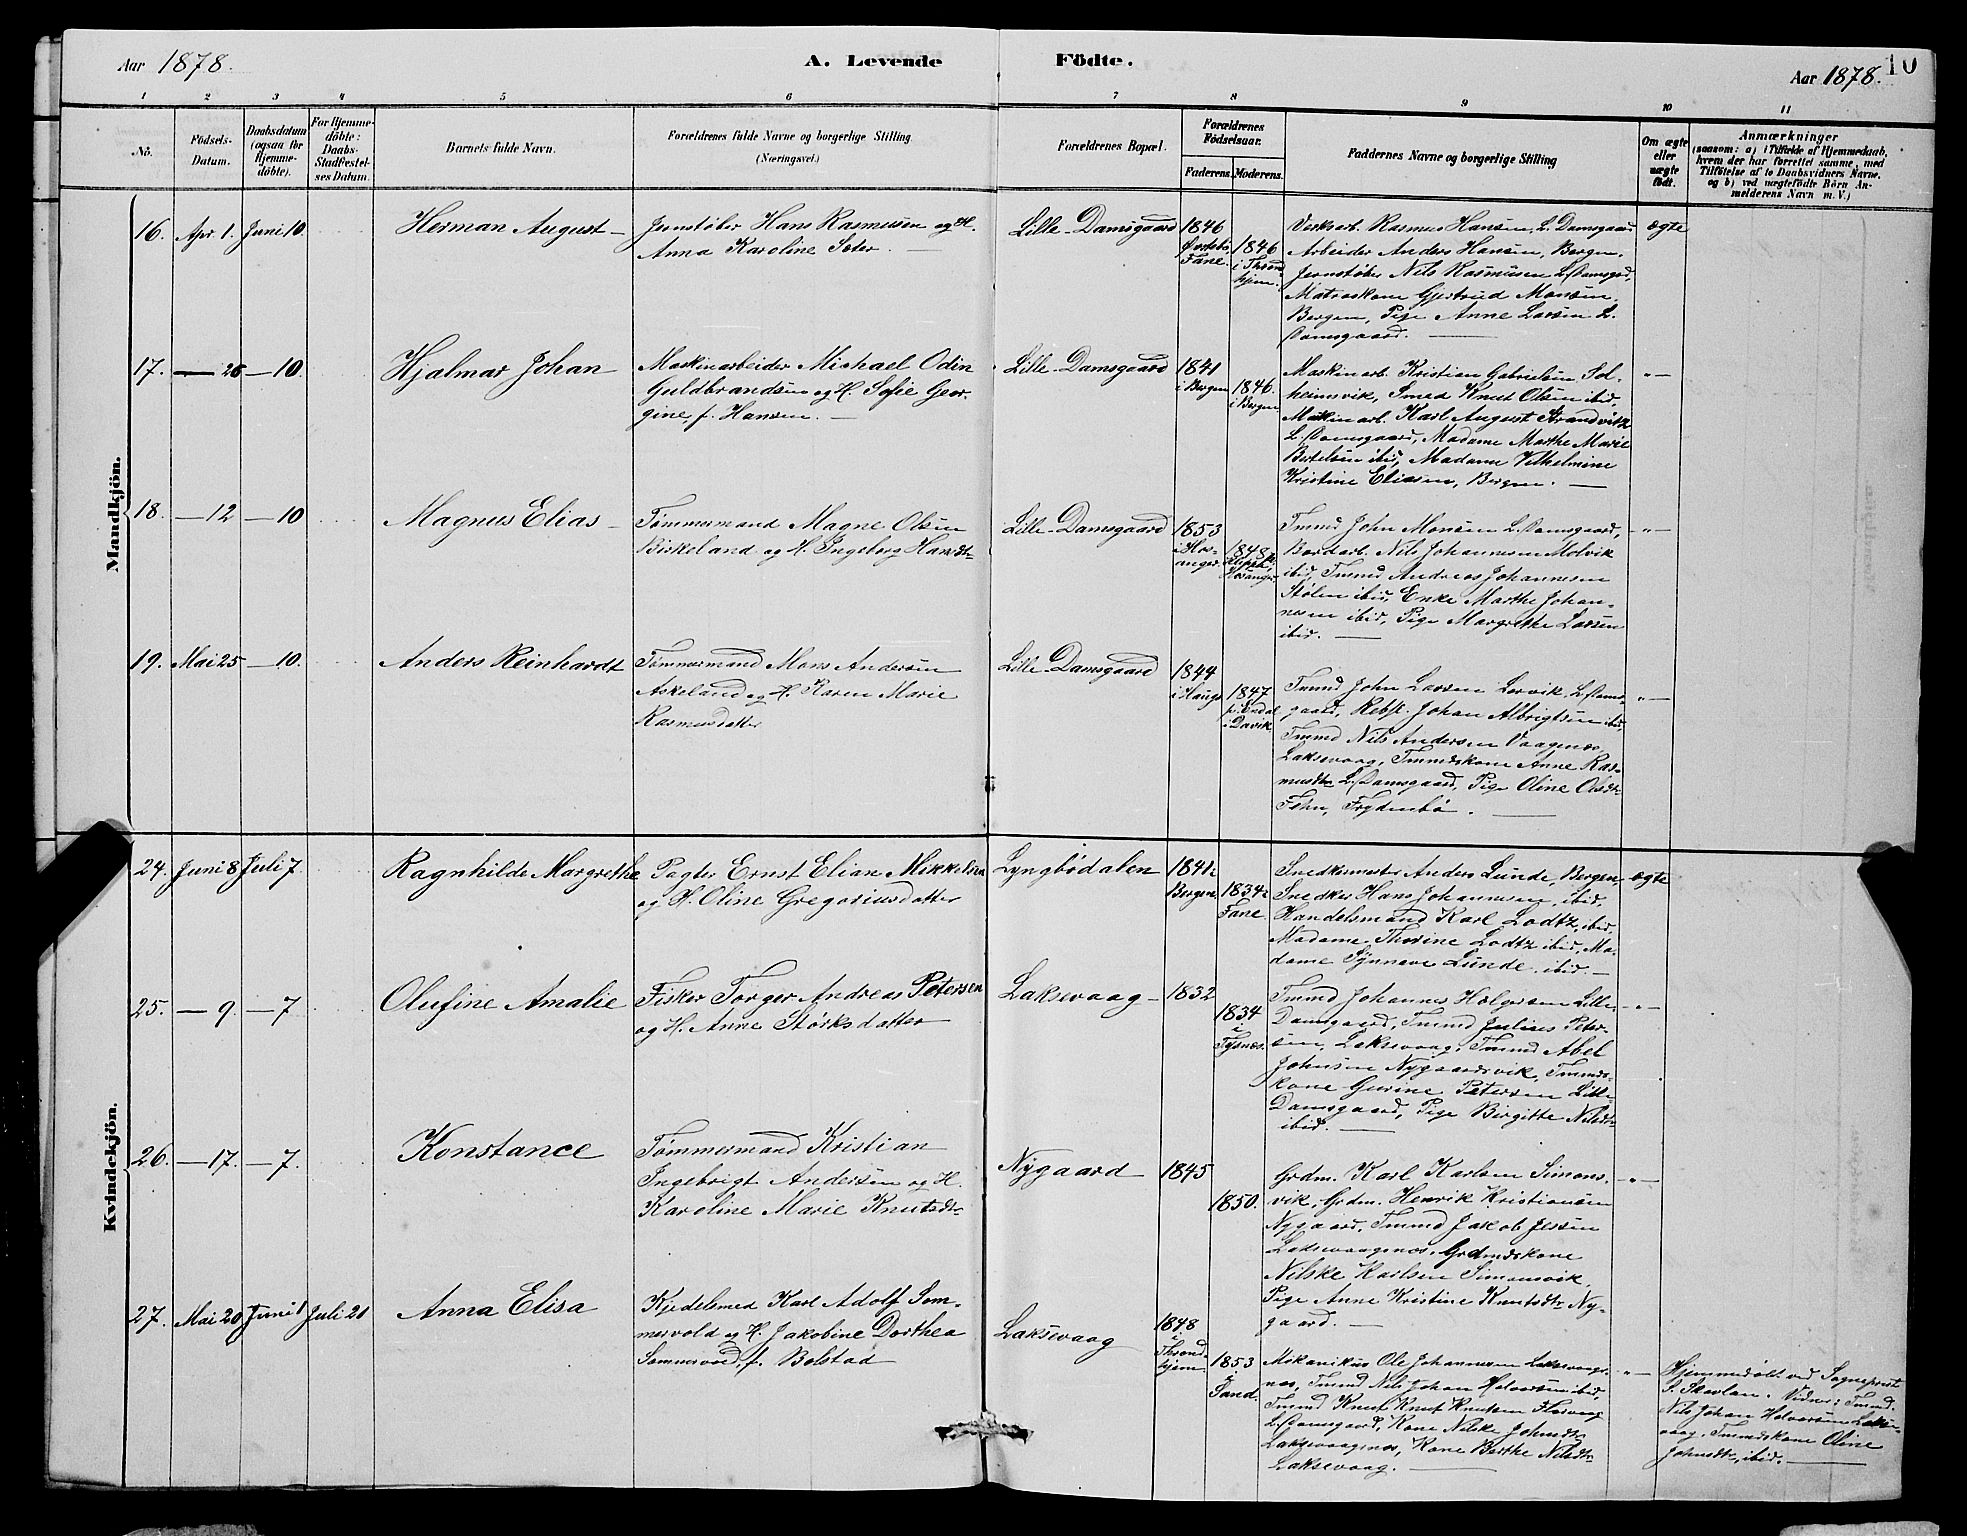 Aar 1878.
A. Levende Födte.
Aar 1878.
10
1 2 3 4 5 6 7 8 9 10 11
No.
Födsels-
Datum.
Daabsdatum
(ogsaa for
Hjemme-
döbte).
For Hjemme-
döbte:
Daabs-
Stadfestel-
ses Datum.
Barnets fulde Navn.
Forældrenes fulde Navne og borgerlige Stilling
(Næringsvei.)
Forældrenes Bopæl.
Forældrenes
Födselsaar.
Faderens. Moderens.
Faddernes Navne og borgerlige Stilling
Om ægte
eller
uægte
födt.
Anmærkninger
(saasom: a) i Tilfælde af Hjemmedaab,
hvem der har forrettet samme, med
Tilföielse af to Daabsvidners Navne,
og b) ved uægtefödte Börn An-
melderens Navn m.V.)
Mandkjön.
16. Apr. 1. Juni 10. Herman August
Jernstøber Hans Rasmussen og H.
Anna Karoline Sæter
Lille Damsgaard
1846
Fane.
1846
i Thrond-
hjem.
Verksarb. Rasmus Hansen, L. Damsgaard
Arbeider Anders Hansen, Bergen,
Jernstøber Nils Rasmussen L. Damsgrd,
Matroskone Gjertrud Monsen,
Bergen, Pige Anne Larsen L.
Damsgaard.
ægte
17. — 26 — 10. Hjalmar Johan
Maskinarbeider Michael Odin
Guldbrandsen og H. Sofie Geor-
gine, f. Hansen.
Lille Damsgaard
1841
i Bergen
1846
i Bergen
Maskinarb. Kristian Gabrielsen Sol-
heimsvik, Smed Knut Olsen ibid,
Maskinarb. Karl August Strandvik
L. Damsgaard, Madame Marthe Marie
Bertelsen ibid, Madame Vilhelmine
Kristine Eliasen, Bergen.
— " —
18. — 12 — 10 Magnus Elias
Tømmermand Magne Olsen
Birkeland og H. Ingeborg Hansdt.
Lille Damsgaard
1853
i Hos-
anger
1848
Hosanger
Tmmd John Monsen L. Damsgaard,
Bordarb. Nils Johannesen Molvik
ibid, Tmmd Andreas Johannesen
Stølen ibid, Enke Marthe Johan-
nesen ibid, Pige Margrethe Larsen
ibid.
— " —
19. Mai 25 — 10. Anders Reinhardt
Tømmermand Mons Andersen
Askeland og H. Karen Marie
Rasmusdatter
Lille Damsgaard
1844
i Haugs
1847
i Davik
Tmmd John Larsen Lervik, L. Dams-
gaard, Rebsl. Johan Albrigtsen ibid,
Tmmd Nils Andersen Vaagenes
Laksevaag, Tmmdskone Anne Ras-
musdtr L. Damsgaard, Pige Oline Olsdtr
Frydenbø.
— " —
Kvindekjön.
24. Juni 8 Juli 7 Ragnhilde Margrethe
Pagter Ernst Elias Mikkelsen
og H. Oline Gregoriusdatter
Lyngbödalen
1841 i
Bergen
1834 i
Fane.
Snedkermester Anders Lunde, Bergen,
Snedker Hans Johannesen, ibid,
Handelsmand Karl Lodtz, ibid,
Madame Thorine Lodtz ibid, Ma-
dame Synneve Lunde, ibid.
ægte
25. — 9. — 7 Olufine Amalie
Fisker Torger Andreas Petersen
og H. Anne Størksdatter
Laksevaag
1832
1834
i
Tysnes.
Tmmd Johannes Holgersen Lille
Damsgaard, Tmmd Julius Peter-
sen, Laksevaag, Tmmd Abel
Johnsen Nygaardsvik, Tmmds-
kone Gurine Petersen Lille
Damsgaard, Pige Birgitte Nilsdtr
ibid.
— " —
26. — 17. — 7. Konstance
Tømmermand Kristian
Ingebrigt Andersen og H.
Karoline Marie Knutsdtr
Nygaard
1845
1850.
Grdm. Karl Karlsen Simons-
vik, Grdm. Henrik Kristiansen
Nygaard, Tmmd Jakob Jessen
Laksevaagnes, Grdmdskone
Nilske Karlsen Simonsvik,
Pige Anne Kristine Knutsdtr Ny-
gaard.
— " —
27. Mai 20 Juni 1 Juli 21 Anna Elisa
Kjedelsmed Karl Adolf Som-
mervold og H. Jakobine Dorthea
Sommervold, f. Bolstad
Laksevaag
1848
i
Thrond-
hjem
1853
i
Sand.
Mekanikus Ole Johannesen Laksevaags-
nes, Tmmd Nils Johan Halvorsen ibid,
Tmmd Knut Knut Knutsen Florvaag
L. Damsgaard, Kone Nilske Johnsdtr
Laksevaagnes, Kone Berthe Nilsdtr
Laksevaag.
— " —
Hjemmedøbt ved Sogneprest
S. Skavlan. Vidner: Tmmd
Nils Johan Halvorsen Lakse-
vaag, Tmmdskone Oline
Johnsdtr, ibid.